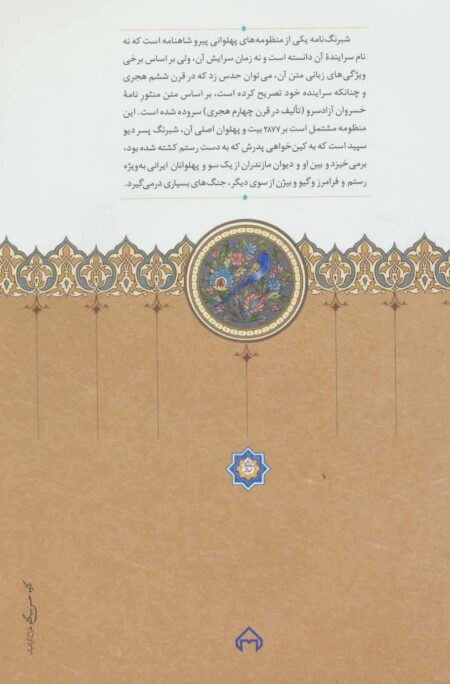 شبرنگ‌نامه یکی از منظومه‌های پهلوانی پیرو شاهنامه است که نه
نام سرایندهٔ آن دانسته است و نه زمان سرایش آن، ولی بر اساس برخی
ویژگی‌های زبانی متن آن، می‌توان حدس زد که در قرن ششم هجری
و چنانکه سراینده خود تصریح کرده است، بر اساس متن منثورِ نامهٔ
خسروان آزادسرو (تألیف در قرن چهارم هجری) سروده شده است. این
منظومه مشتمل است بر ۲۸۷۷ بیت و پهلوان اصلی آن، شبرنگ پسر دیو
سپید است که به کین‌خواهی پدرش که به دست رستم کشته شده بود،
برمی‌خیزد و بین او و دیوان مازندران از یک سو و پهلوانان ایرانی به‌ویژه
رستم و فرامرز و گیو و بیژن از سوی دیگر، جنگ‌های بسیاری درمی‌گیرد.